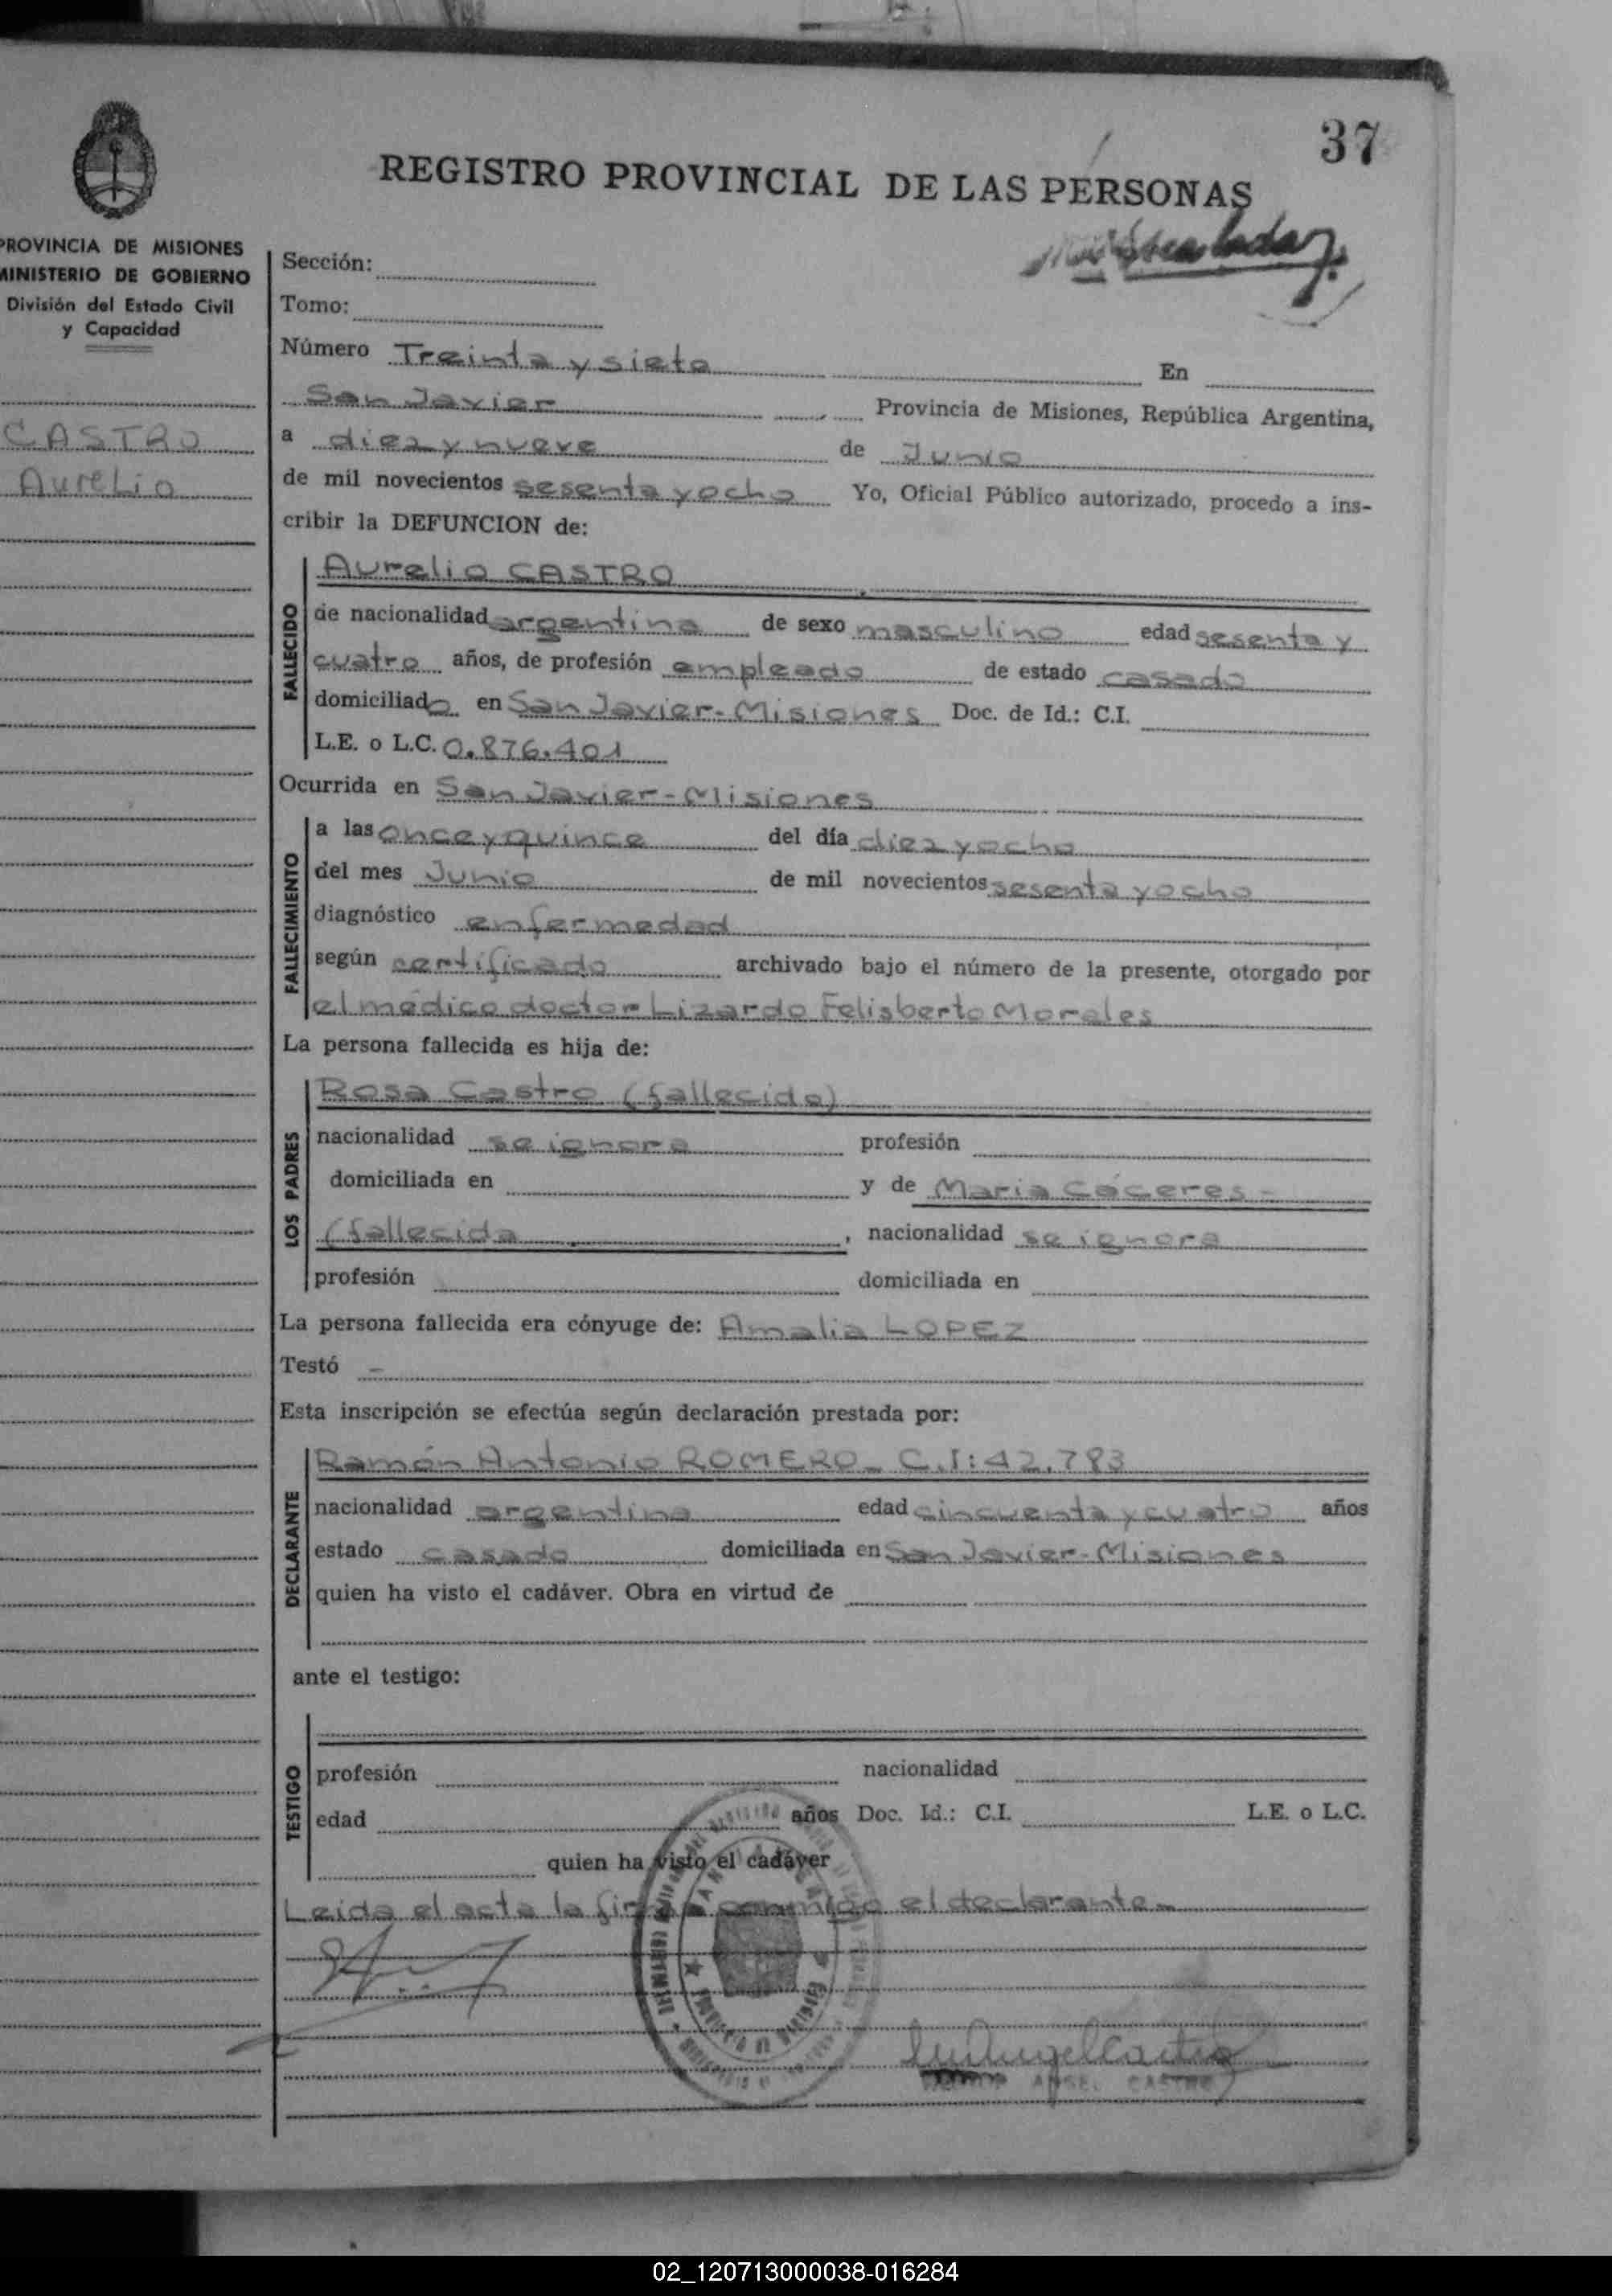 37
REGISTRO PROVINCIAL DE LAS PERSONAS
PROVINCIA DE MISIONES
MINISTERIO DE GOBIERNO
División del Estado Civil
y Capacidad
CASTRO
Aurelio
Sección:
Tomo:
Número Treinta y siete En
San Javier Provincia de Misiones, República Argentina,
a diez y nueve de Junio
de mil novecientos sesenta y ocho Yo, Oficial Público autorizado, procedo a ins-
cribir la DEFUNCION de:
FALLECIDO
Aurelio CASTRO
de nacionalidad argentina de sexo masculino edad sesenta y
cuatro años, de profesión empleado de estado casado
domiciliado en San Javier - Misiones Doc. de Id.: C.I.
L.E. o L.C. 0.876.401
Ocurrida en San Javier - Misiones
FALLECIMIENTO
a las once y quince del día diez y ocho
del mes Junio de mil novecientos sesenta y ocho
diagnóstico enfermedad
según certificado archivado bajo el número de la presente, otorgado por
el médico doctor Lizardo Felisberto Morales
La persona fallecida es hija de:
LOS PADRES
Rosa Castro (fallecido)
nacionalidad se ignora profesión
domiciliada en y de Maria Cáceres -
(fallecida , nacionalidad se ignora
profesión domiciliada en
La persona fallecida era cónyuge de: Amalia LOPEZ
Testó -
Esta inscripción se efectúa según declaración prestada por:
DECLARANTE
Ramón Antonio ROMERO - C.I: 42.783
nacionalidad argentina edad cincuenta y cuatro años
estado casado domiciliada en San Javier - Misiones
quien ha visto el cadáver. Obra en virtud de
ante el testigo:
TESTIGO
profesión nacionalidad
edad años Doc. Id.: C.I. L.E. o L.C.
quien ha visto el cadáver
Leida el acta la firma conmigo el declarante -
ANGEL CASTRO
02_120713000038-016284